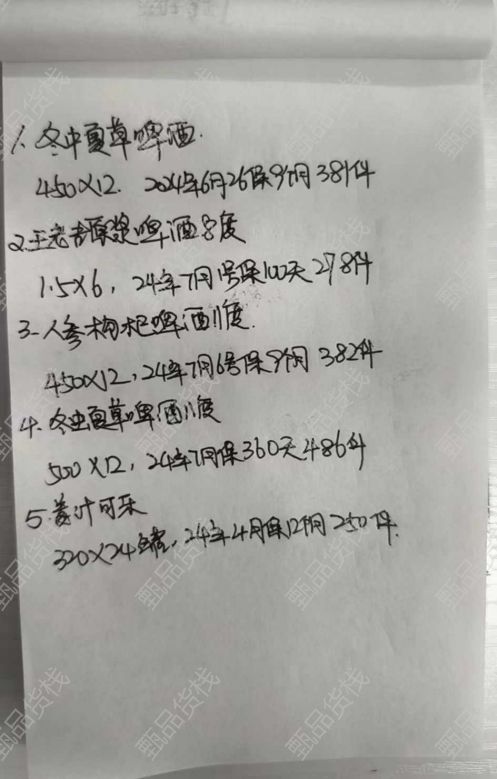 1、冬中夏草啤酒.
450X12. 2024年6月26保9个月381件
2.王老吉原浆啤酒8度
1.5X6，24年7月1号保100天278件
3-人参枸杞啤酒11度.
450X12，24年7月6号保9个月 382件
4.冬虫夏草啤酒11度
500X12，24年7月保360天486件
5.姜汁可乐
320X24罐，24年4月保12个月250件.
甄品货栈